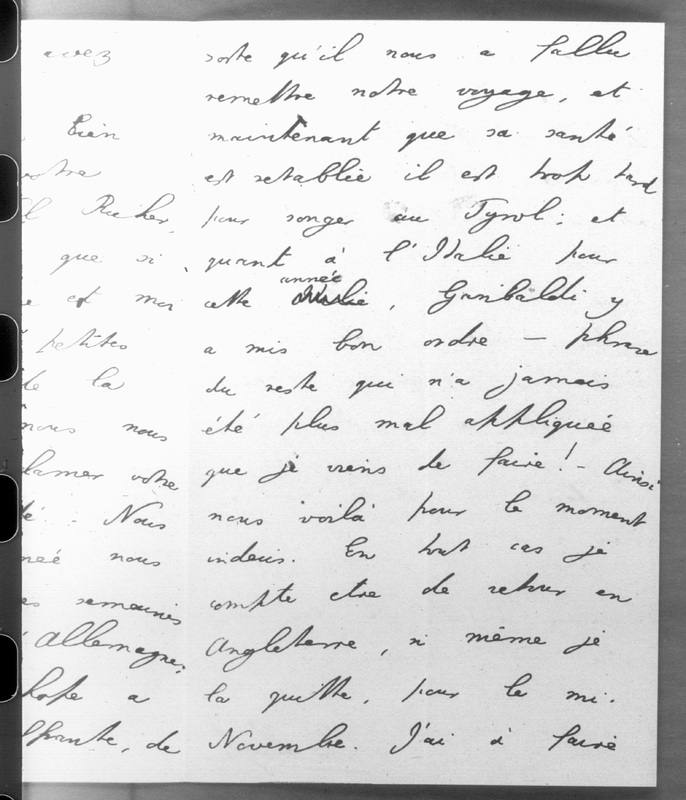 avez
bien
votre
Richer,
que si
et moi
petites
de la
nous nous
votre
Nous
nous
semaines
Allemagne,
a
de
sorte qu'il nous a fallu
remettre notre voyage, et
maintenant que sa santé
est retablie il est trop tard
pour songer au Tyrol; et
quant à l'Italie pour
cette année, Garibaldi y
a mis bon ordre — phrase
du reste qui n'a jamais
été plus mal appliqueé
que je viens de faire! - Ainsi
nous voilà pour le moment
indecis. En tout cas je
compte etre de retour en
Angleterre, si même je
la quitte, pour le mi-
Novembre. J'ai à faire